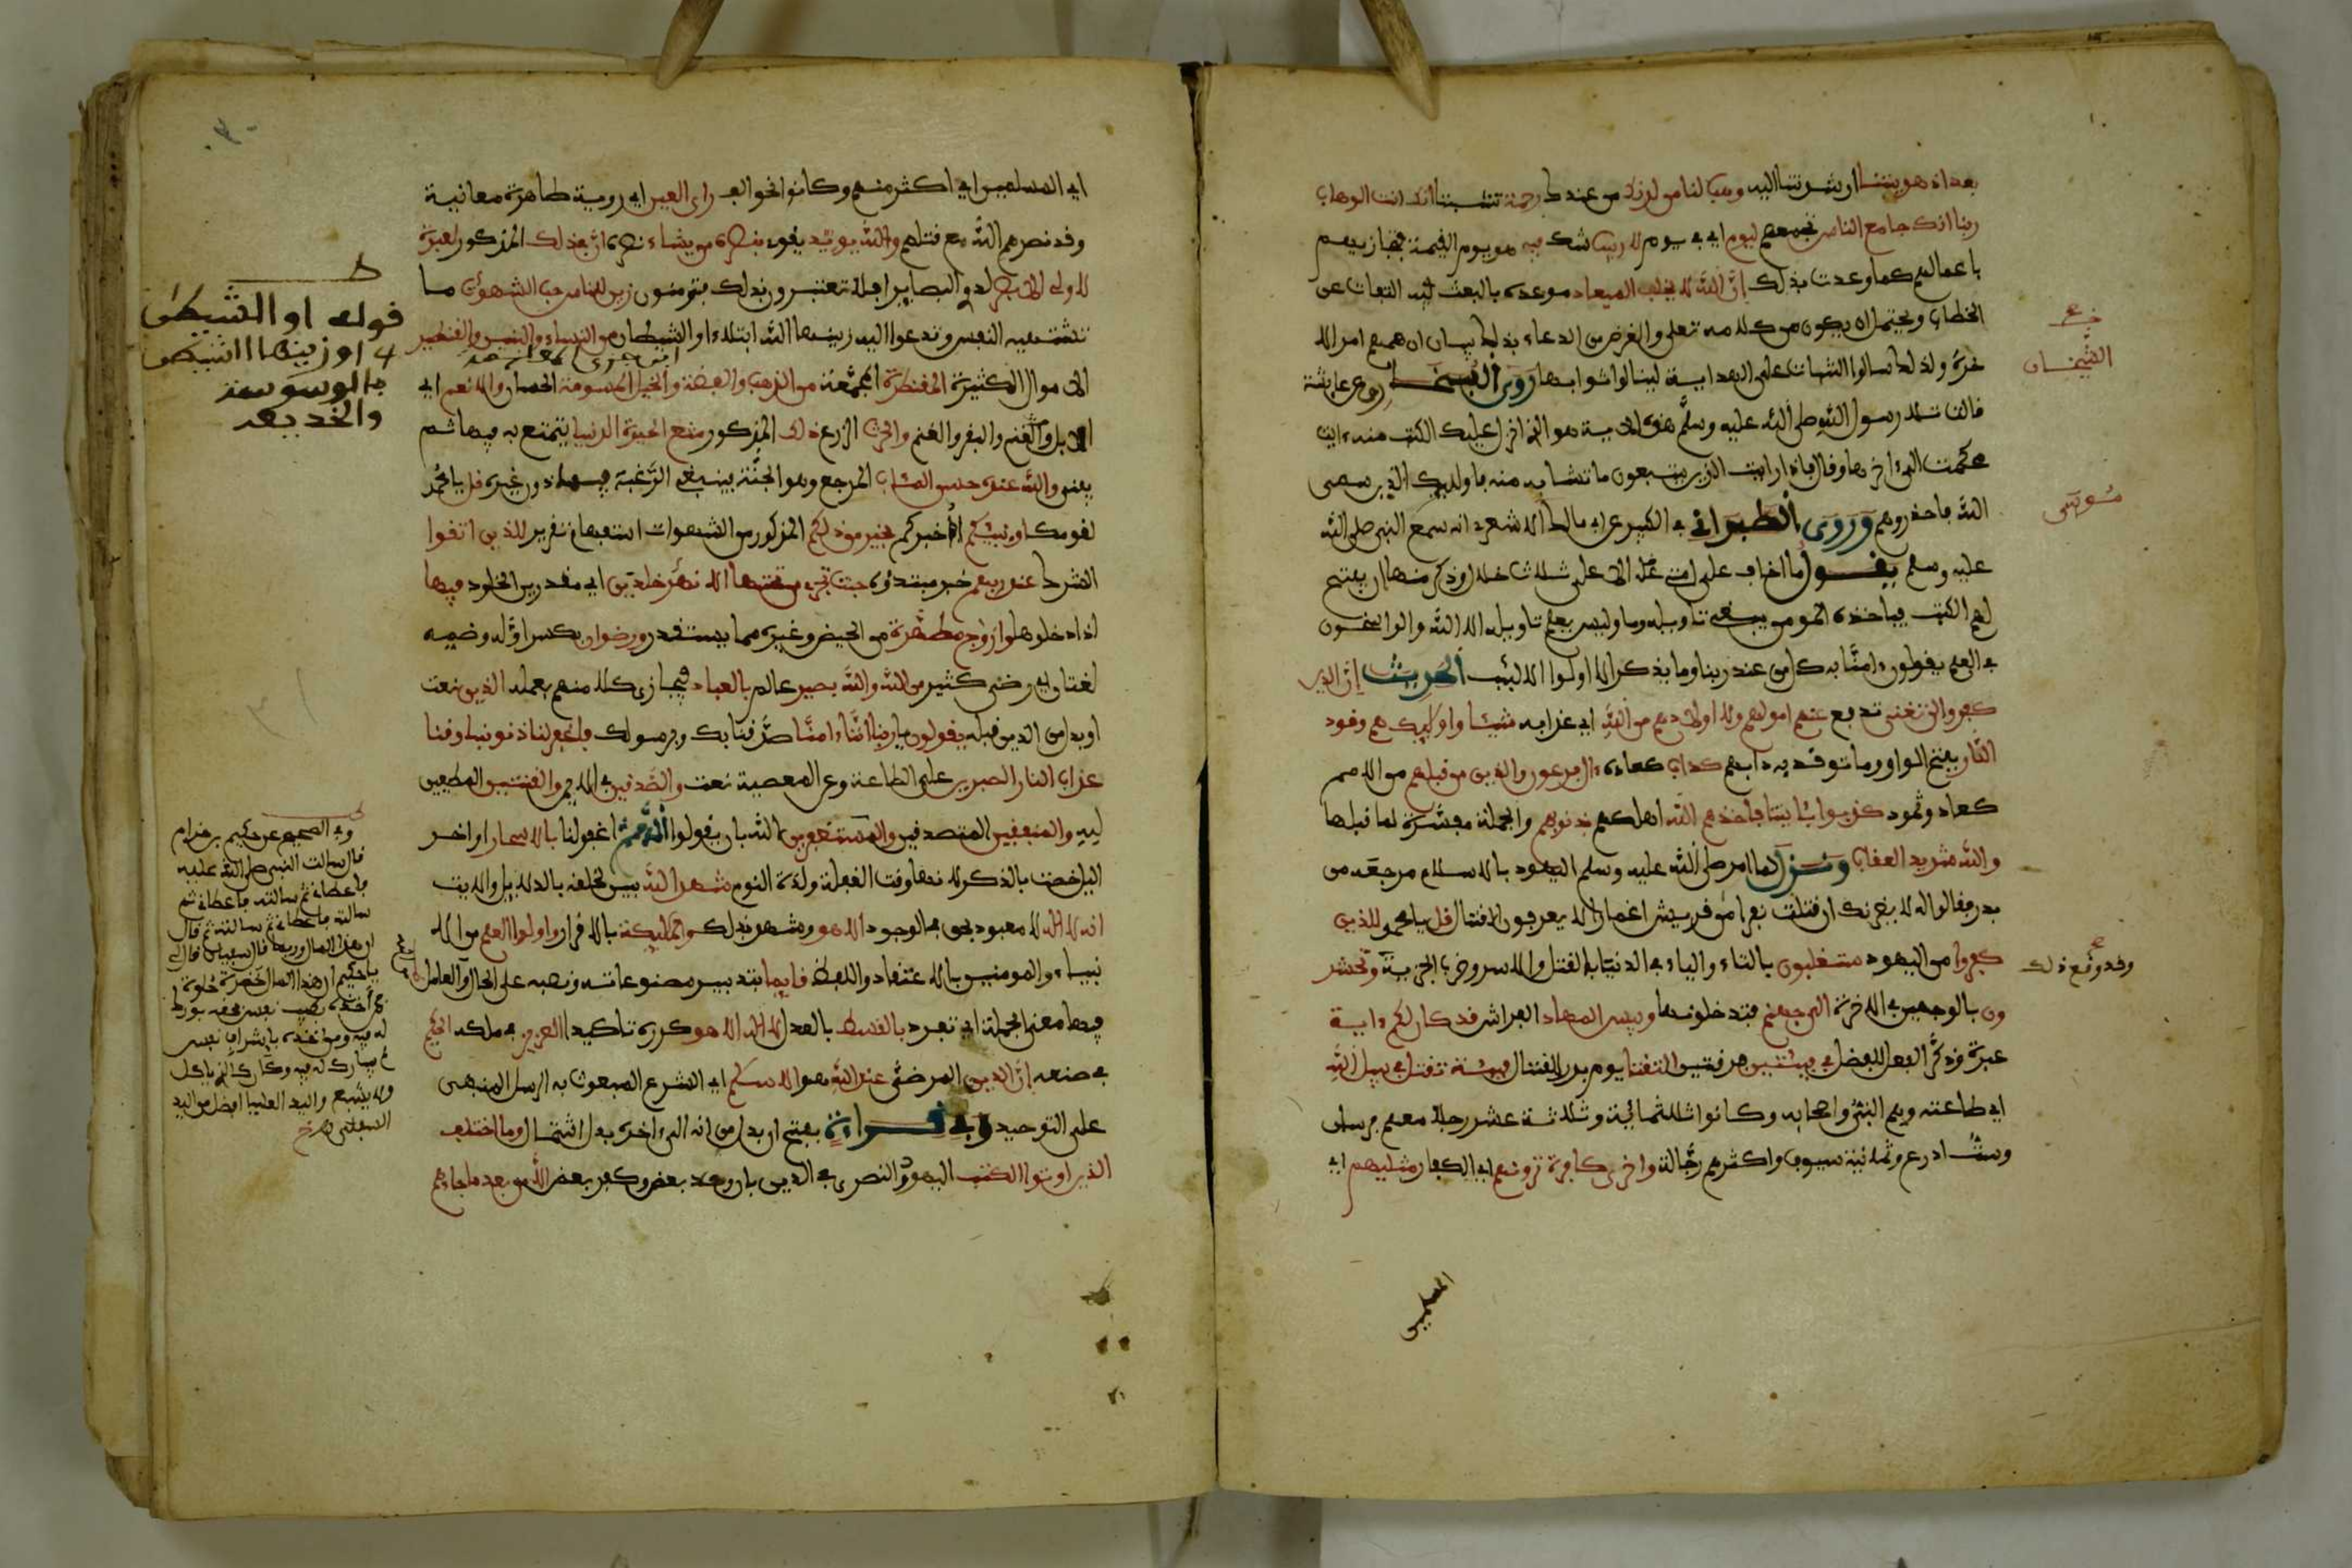 بعد اذ هديتنا ارشدتنا اليه وهب لنا من لدنك من عندك رحمة تثبيتا انك انت الوهاب
ربنا انك جامع الناس تجمعهم ليوم اي في يوم لا ريب شك فيه هو يوم القيمة فتجازيهم
باعمالهم كما وعدت بذلك ان الله لا يخلف الميعاد موعده بالبعث فيه التفات عن
الخطاب ويحتمل ان يكون من كلامه تعلى والغرض من الدعاء بذلك بيان ان همهم امر الا
خرة ولذلك سالوا الثبات على الهداية لينالوا ثوابها روى الشيخان عن عايشة
قالت تلا رسول الله صلى الله عليه وسلم هذه الاية هو الذي انزل عليك الكتب منه ءايت
محكمت الى ءاخرها وقال فاذا رايت الذين يتبعون ما تشابه منه فاوليك الذين سمى
الله فاحذروهم وروى الطبراني في الكبير عن ابي مالك الاشعري انه سمع النبي صلى الله
عليه وسلم يقول ما اخاف على امتي الا ثلاث خلال وذكر منها ان يفتح
لهم الكتب فياخذه المومن يبتغي تاويله وليس يعلم تاويله الا الله والراسخون
في العلم يقولون ءامنا به كل من عند ربنا وما يذكر الا اولوا الالبب الحديث ان الذين
كفروا لن تغني تدفع عنهم امولهم ولا اولدهم من الله اي عذابه شيئا واوليك هم وقود
النار بفتح الواو ما توقد به دابهم كداب كعادة ءال فرعون والذين من قبلهم من الامم
كعاد وثمود كذبوا بايتنا فاخذهم الله اهلكهم بذنوبهم والجملة مفسرة لما قبلها
والله شديد العقاب ونزل لما امر صلى الله عليه وسلم اليهود بالاسلام مرجعه من
بدر فقالوا له لا يغرنك ان قتلت نفرا من قريش اغمارا لا يعرفون القتال قل يا محمد للذين
كفروا من اليهود ستغلبون بالتاء والياء في الدنيا بالقتل والاسر وضرب الجزية وتحشر
ون بالوجهين في الاخرة الى جهنم فتدخلونها وبيس المهاد الفراش قد كان لكم ءاية
عبرة وذكر الفعل للفصل في فيتين فرقتين التقتا يوم بدر للقتال فية تقتل في سبيل الله
اي طاعته وهم النبي واصحابه وكانوا ثلاثمائة وثلاثة عشر رجلا معهم فرسان
وست ادرع وثمانية سيوف واكثرهم رجالة واخرى كافرة ترونهم اي الكفار مثليهم اي
الشيخان
موسى
وقد وقع ذلك
المسلمين
اي المسلمين اي اكثر منهم وكانوا نحو الف راي العين اي روية ظاهرة معاينة
وقد نصرهم الله مع قلتهم والله يويد يقوي بنصره من يشاء نصره ان في ذلك المذكور لعبرة
لاولي الابصر لذوي البصاير افلا تعتبرون بذلك فتومنون زين للناس حب الشهوت ما
تشتهيه النفس وتدعوا اليه زينها الله ابتلاء او الشيطان من النساء والبنين والقنطير
الاموال الكثيرة المقنطرة المجمعة من الذهب والفضة والخيل المسومة الحسان والانعم اي
الابل والبقر والغنم والحرث الزرع ذلك المذكور متع الحيوة الدنيا يتمتع به فيها ثم
يفنى والله عنده حسن المئاب المرجع وهو الجنة فينبغي الرغبة فيها دون غيره قل يا محمد
لقومك اونبيكم اخبركم بخير من ذلكم المذكور من الشهوات استفهام تقرير للذين اتقوا
الشرك عند ربهم خبر مبتدوه جنت تجري من تحتها الانهر خلدين اي مقدرين الخلود فيها
اذا دخلوها وازوج مطهرة من الحيض وغيره مما يستقذر ورضوان بكسر اوله وضمه
لغتان اي رضى كثير من الله والله بصير عالم بالعباد فيجازي كلا منهم بعمله الذين نعت
او بدل من الذين قبله يقولون يا ربنا اننا ءامنا صدقنا بك وبرسولك فاغفر لنا ذنوبنا وقنا
عذاب النار الصبرين على الطاعة وعن المعصية نعت والصدقين في الايمن والقنتين المطيعين
لله والمنفقين المتصدقين والمستغفرين الله بان يقولوا اللهم اغفر لنا بالاسحار اواخر
الليل خصت بالذكر لانها وقت الغفلة ولذة النوم شهد الله بين لخلقه بالدلايل والايت
انه لا اله لا معبود بحق في الوجود الا هو وشهد بذلك المليكة بالاقرار واولوا العلم من الا
نبياء والمومنين بالاعتقاد واللفظ قايما بتدبير مصنوعاته ونصبه على الحال والعامل
فيها معنى الجملة اي تفرد بالقسط بالعدل لا اله الا هو كرره تاكيدا العزيز في ملكه الحكيم
في صنعه ان الدين المرضي عند الله هو الاسلم اي الشرع المبعوث به الرسل المبني
على التوحيد وفي قراءة بفتح ان بدل من انه الى ءاخره بدل اشتمال وما اختلف
الذين اوتوا الكتب اليهود والنصرى في الدين بان وحد بعض وكفر بعض الا من بعد ما جاءهم
قوله او الشيطن
اي او زينها الشيطن
بالوسوسة
والخديعة
وفي الصحيح عن حكيم بن حزام
قال سالت النبي صلى الله عليه
فاعطاني ثم سالته فاعطاني ثم
سالته فاعطاني ثم سالته ثم قال
ان هذا المال وربما قال سفيان قال
يا حكيم ان هذا المال خضرة حلوة
فمن اخذه بطيب نفس بورك
له فيه ومن اخذه باشراف نفس
لم يبارك له فيه وكان كالذي ياكل
ولا يشبع واليد العليا افضل من اليد
السفلى